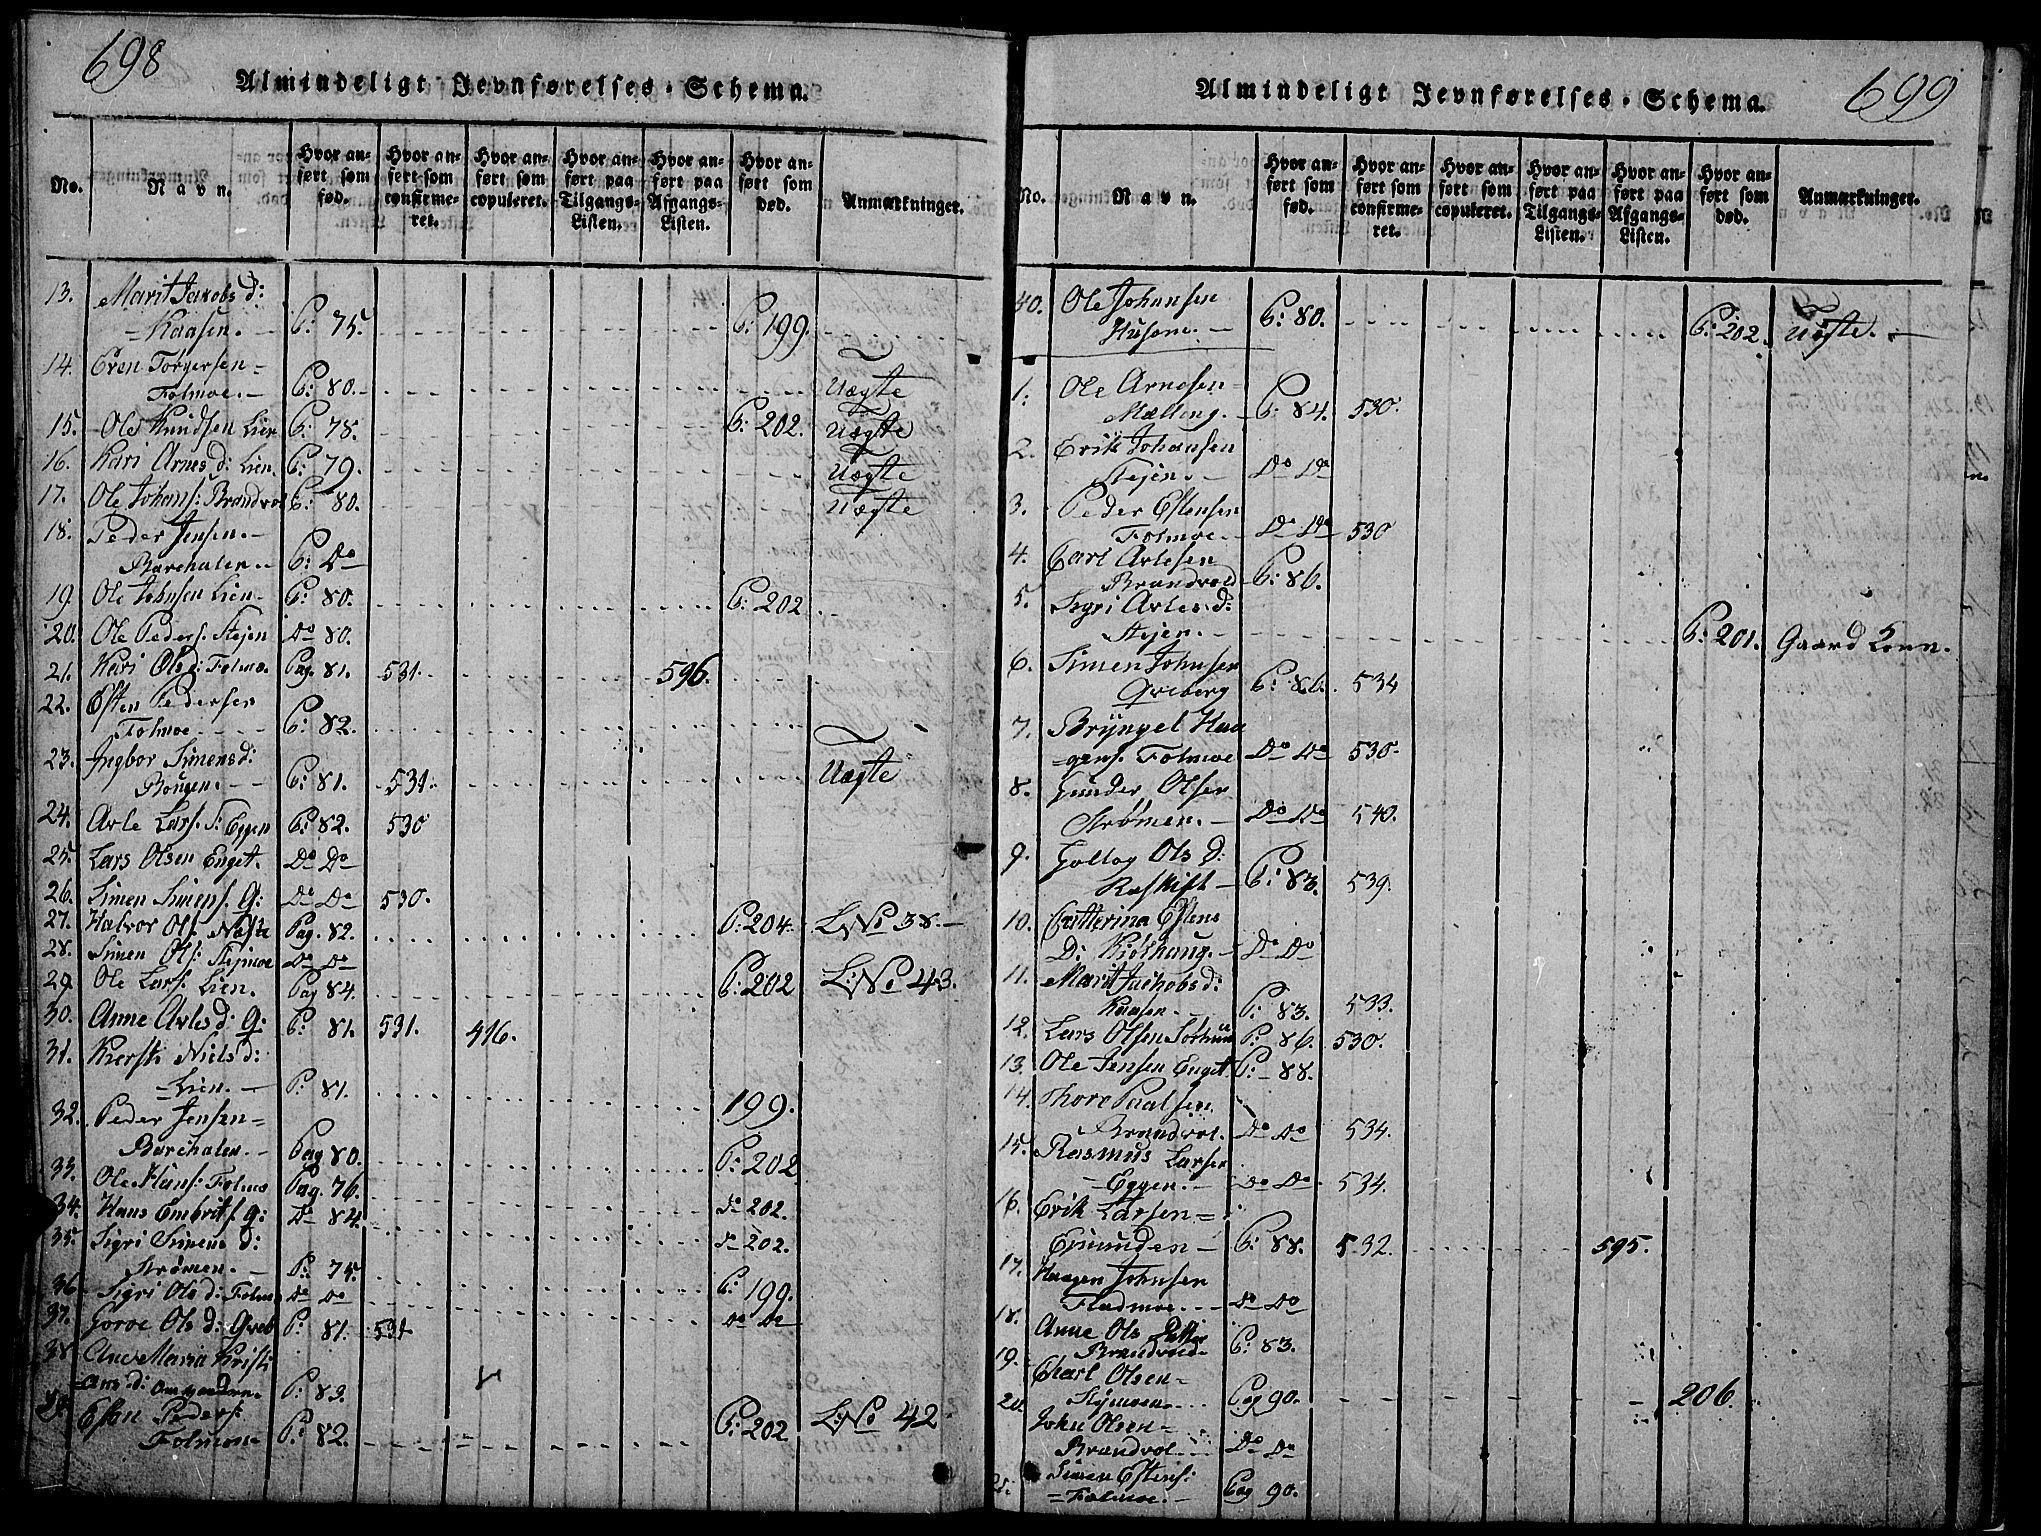 698
Almindeligt Jevnførelses-Schema.
No. Navn. Hvor anført som fød. Hvor anført som confirmeret. Hvor anført som copuleret. Hvor anført paa Tilgangs-Listen. Hvor anført paa Afgangs-Listen. Hvor anført som død. Anmærkninger.
13. Marit Jakobs d:
Kaasen. P: 75. P: 199.
14. Torgersen
Folmoe. P: 80. Uægte
15. Ole Knudsen Lien P: 78. P: 202. Uægte
16. Kari Arnes d: Lien. P: 79. Uægte
17. Ole Johans: Brandvol P: 80. Uægte
18. Peder Jensen.
Barchalen. P: Do
19. Ole Johnsen Lien P: 80. P: 202
20. Ole Peders. Stejen Do 80.
21. Kari Ols d: Folmo. Pag. 81. 531. 596.
22. Østen Pedersen
Folmoe P: 82.
23. Ingbor Simens d:
Bougen. P: 81. 531. Uægte
24. Arle Lars. S: Eggen P: 82. 530
25. Lars Olsen Enget. Do Do
26. Simen Simens. G: Do Do 530.
27. Halvor Ols. Pag. 82. P: 204. L. No 38.
28. Simen Ols: Stejmoe Do Do
29. Ole Lars. Lien. Pag 84. P: 202 L: No 43.
30. Anne Arles d: G: P: 81. 531. 416.
31. Kiersti Niels d:
Lien. P: 81. 199.
32. Peder Jensen
Barchalen. Pag 80. P: 202
33. Ole Hans: Folmo Pag. 76. do 202.
34. Hans Embrits. G: Do 84. do 202.
35. Sigri Simens d:
Strømen. P: 75.
36 Sigri Ols d: Folmo Do Do P: 199.
37. Ols d: P: 81. 531 Do Do
38 Ane Maria Kristi
ans d: P: 83.
39. Peders:
Folmoe P: 82. P: 202 L: No 42
699
Almindeligt Jevnførelses-Schema.
No. Navn. Hvor anført som fød. Hvor anført som confirmeret. Hvor anført som copuleret. Hvor anført paa Tilgangs-Listen. Hvor anført paa Afgangs-Listen. Hvor anført som død. Anmærkninger.
40. Ole Johansen
Husom. P: 80. P: 202. Uægte.
1. Ole Arnesen
Mælleng. P: 84. 530.
2. Erik Johansen
Stejen. Do Do
3. Peder Estensen
Folmoe. Do Do 530
4. Carl Arlesen
Brandvold P: 86.
5. Sigri Arles d:
Stejen. P: 201. Gaard Konn.
6. Simen Johnsen
Qveberg P: 86. 534
7. Bryngel Haa
gens. Folmoe Do Do 530.
8. Gunder Olsen
Strømen. Do Do 540.
9. Ols d:
Raskift P: 83. 539.
10. Cattherina Estens
D: Kiølhaug. Do Do
11. Marit Jachobs d:
Kaasen. P: 83. 533.
12. Lars Olsen P: 86. 530.
13. Ole Jensen Enget P: 88.
14. Thore Paalsen
Brandvol. Do Do 534.
15. Rasmus Larsen
Eggen. Do Do 534.
16. Erik Larsen
Ejmunden P: 88. 532. 595.
17. Haagen Johnsen
Fladmoe. Do Do
18. Anne Ols Datter
Brandvold P: 83.
19. Charl Olsen
Stejmoen Pag 90. 206.
20 John Olsen
Brandvol. Do Do
Simen Estens:
Folmoe. Pag 90.